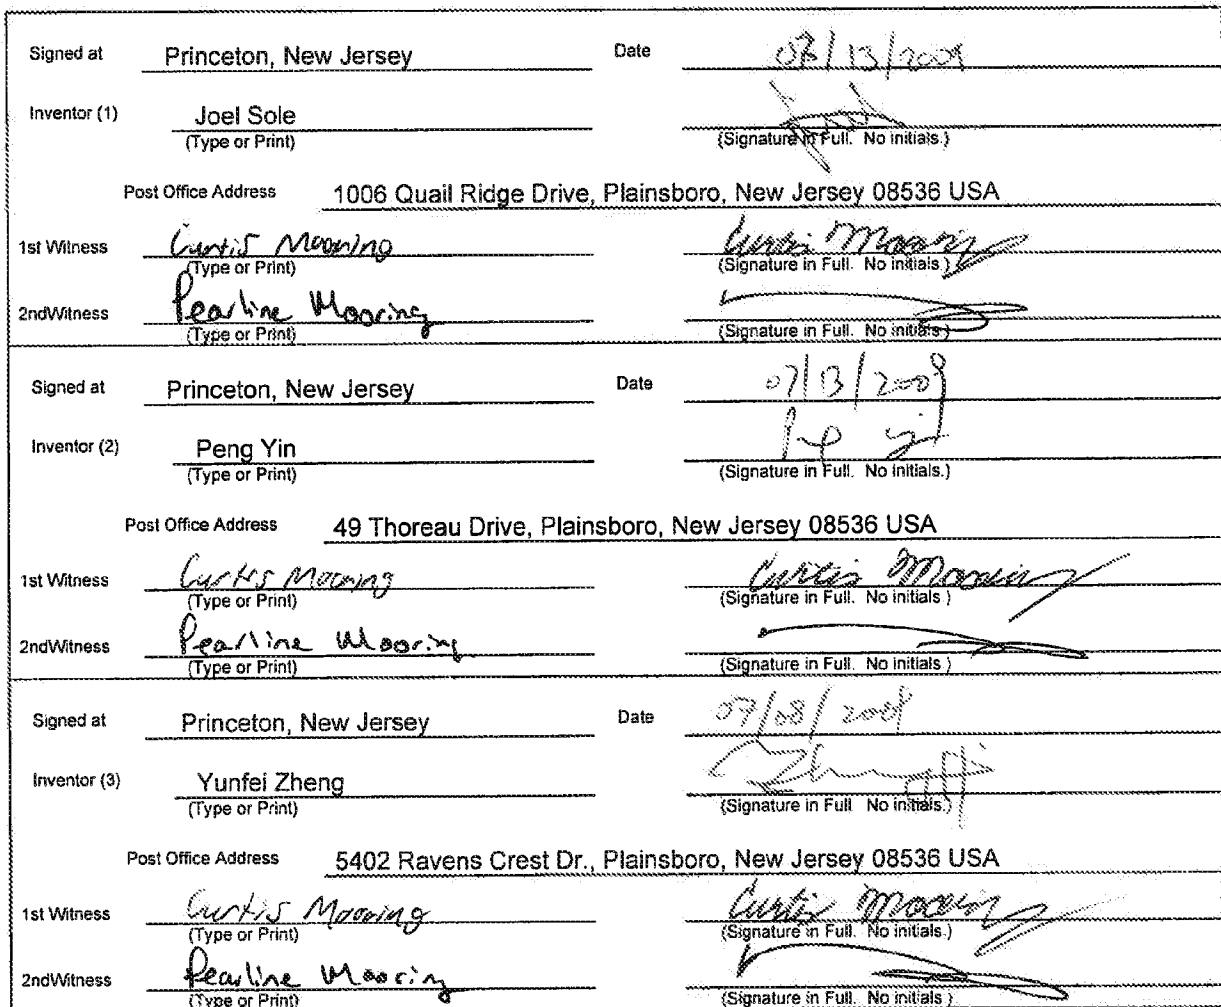 Signed at Princeton, New Jersey Date 07/13/2009
Inventor (1) Joel Sole
(Type or Print) (Signature in Full. No initials.)
Post Office Address 1006 Quail Ridge Drive, Plainsboro, New Jersey 08536 USA
1st Witness Curtis Mooring Curtis Mooring
(Type or Print) (Signature in Full. No initials.)
2ndWitness Pearline Mooring
(Type or Print) (Signature in Full. No initials.)
Signed at Princeton, New Jersey Date 07/13/2009
Inventor (2) Peng Yin
(Type or Print) (Signature in Full. No initials.)
Post Office Address 49 Thoreau Drive, Plainsboro, New Jersey 08536 USA
1st Witness Curtis Mooring Curtis Mooring
(Type or Print) (Signature in Full. No initials.)
2ndWitness Pearline Mooring
(Type or Print) (Signature in Full. No initials.)
Signed at Princeton, New Jersey Date 07/08/2009
Inventor (3) Yunfei Zheng
(Type or Print) (Signature in Full. No initials.)
Post Office Address 5402 Ravens Crest Dr., Plainsboro, New Jersey 08536 USA
1st Witness Curtis Mooring Curtis Mooring
(Type or Print) (Signature in Full. No initials.)
2ndWitness Pearline Mooring
(Type or Print) (Signature in Full. No initials.)